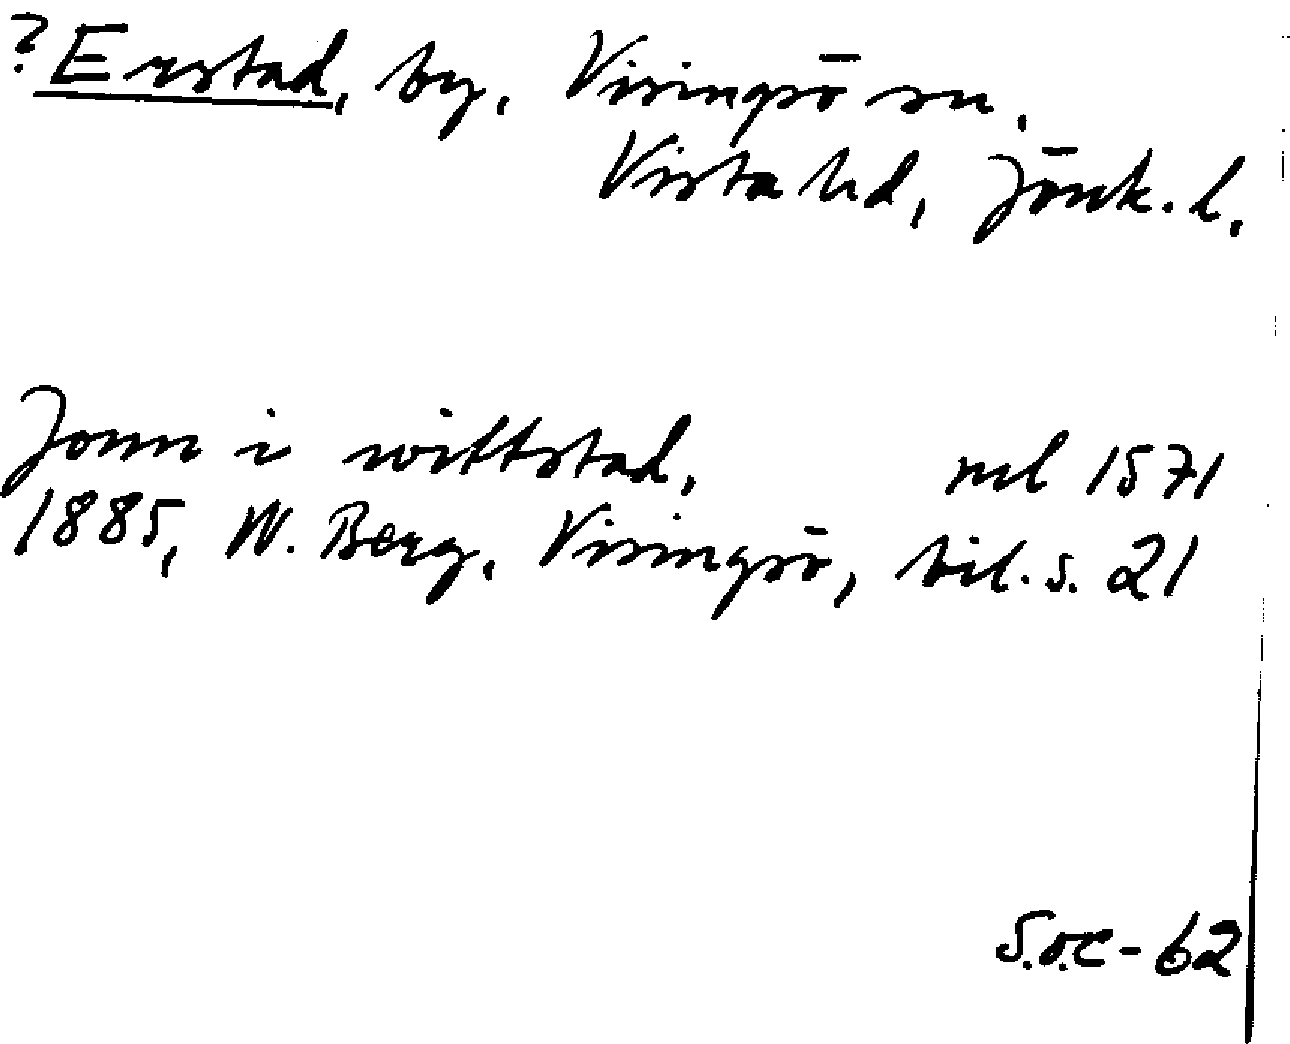 ? Erstad, by, Visingsö sn,
Vista hd, Jönk. l.
Jonn i wittstad, ml 1571
1885, W. Berg, Visingsö, bil. s. 21
S.o.C-62